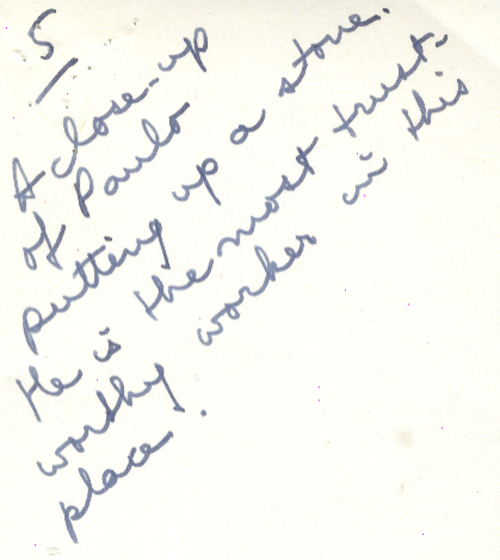 5
A close-up
of Paulo
putting up a stone.
He is the most trust-
worthy worker in this
place.